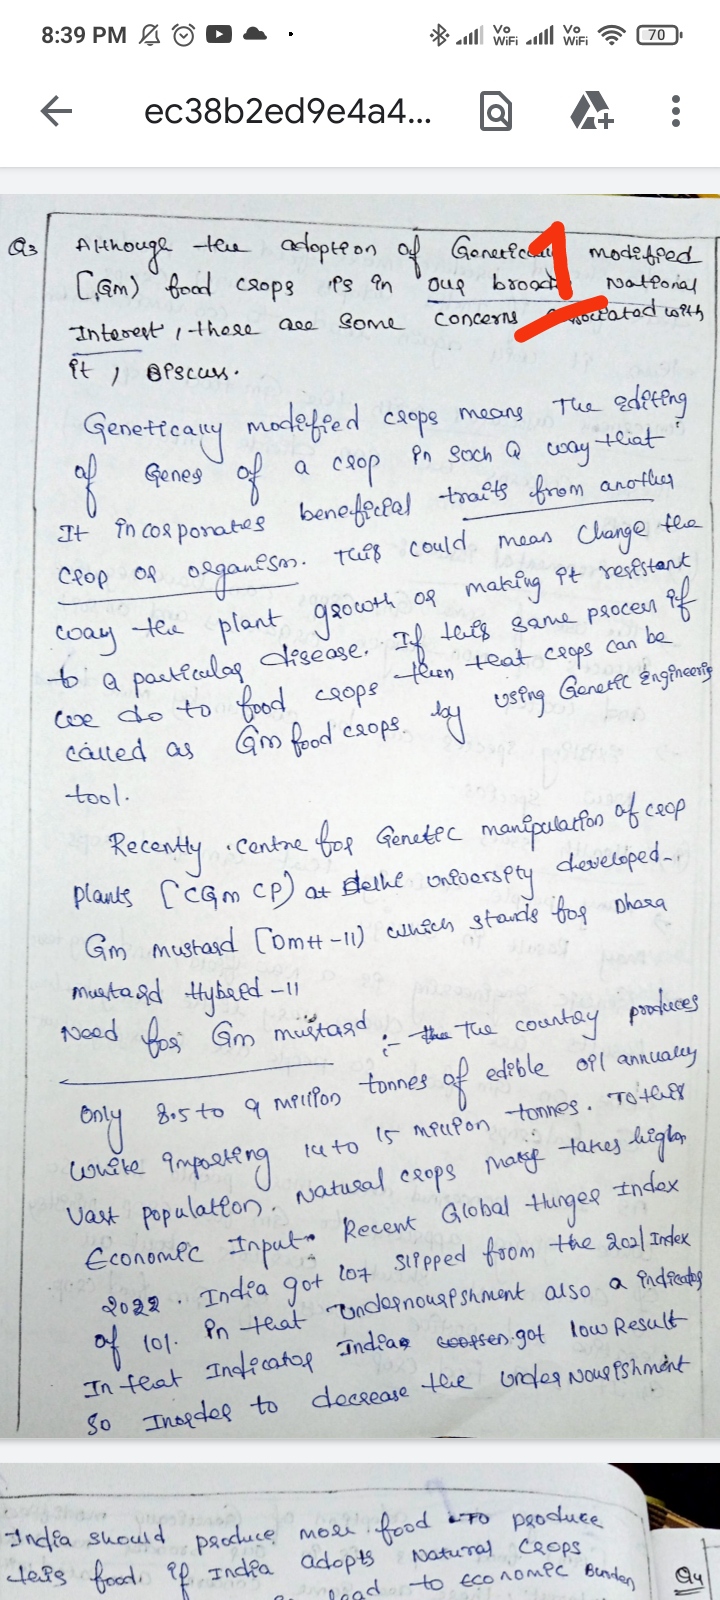 8:39 PM
Vo WiFi Vo WiFi 70
ec38b2ed9e4a4...
1
Q3 Although the adoption of Genetically modified
[GM) food crops is in our broader National
Interest, there are some concerns associated with
it, Discuss.
Genetically modified crops means The editing
of Genes of a crop in such a way that
It incorporates beneficial traits from another
crop or organism. This could mean change the
way the plant growth or making it resistant
to a particular disease. If this same process if
we do to food crops then that crops can be
called as Gm food crops. by using Genetic Engineering
tool.
Recently centre for Genetic manipulation of crop
plants [CGMCP) at Delhi university developed
Gm mustard [DMH-11) which stands for Dhara
mustard Hybrid -11
Need for Gm mustard :- The country produces
Only 8.5 to 9 million tonnes of edible oil annually
while importing 14 to 15 million tonnes. To this
Vast population. Natural crops takes higher
Economic Input. Recent Global Hunger Index
2022. India got 107 slipped from the 2021 Index
of 101. in that undernourishment also a indicator
In that Indicator India got low Result
So Inorder to decrease the under Nourishment
India should produce more food To produce
this food. if India adopts Natural Crops
lead to economic Burden
Q4